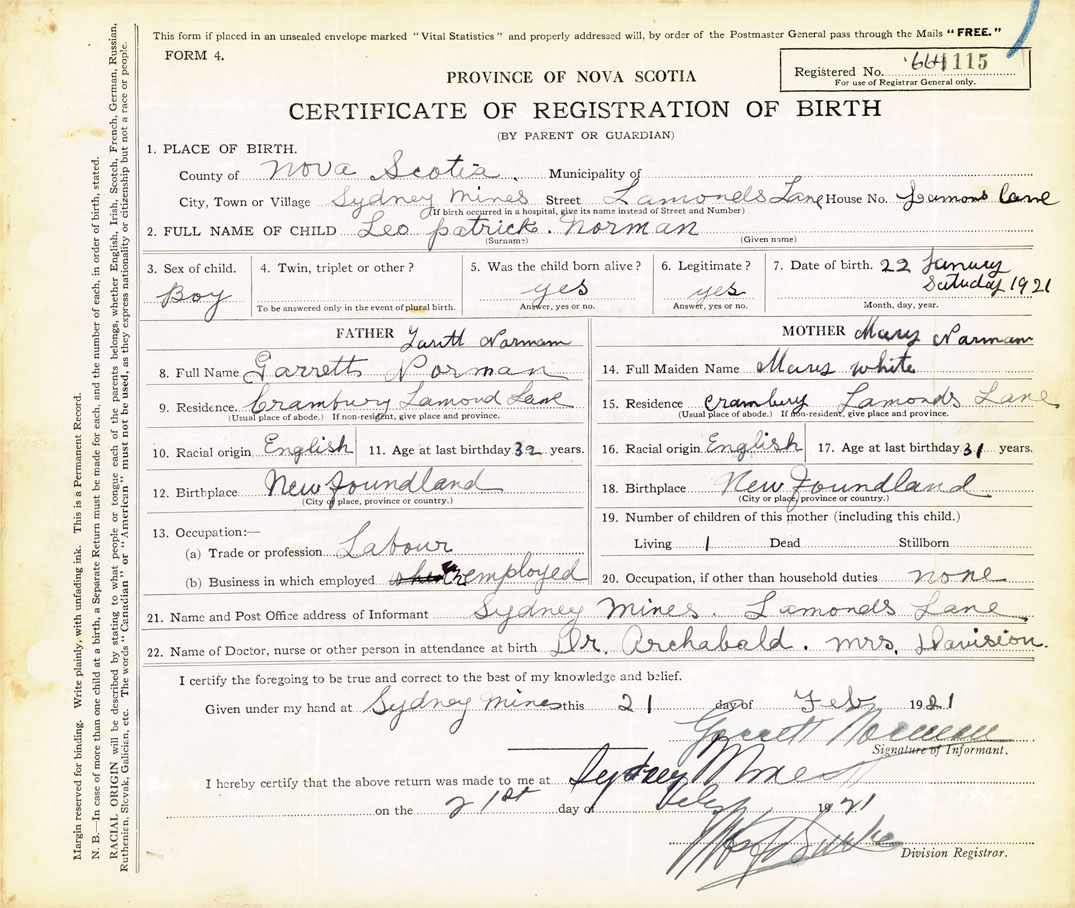 This form if placed in an unsealed envelope marked "Vital Statistics" and properly addressed will, by order of the Postmaster General pass through the Mails "FREE."
FORM 4.
Registered No. 664115
For use of Registrar General only.
PROVINCE OF NOVA SCOTIA
CERTIFICATE OF REGISTRATION OF BIRTH
(BY PARENT OR GUARDIAN)
1. PLACE OF BIRTH.
County of Nova Scotia. Municipality of
City, Town or Village Sydney Mines Street Lamonds Lane House No. Lemons Lane
(If birth occurred in a hospital, give its name instead of Street and Number)
2. FULL NAME OF CHILD Leo patrick. Norman
(Surname) (Given name)
3. Sex of child. Boy
4. Twin, triplet or other?
To be answered only in the event of plural birth.
5. Was the child born alive? yes
Answer, yes or no.
6. Legitimate? yes
Answer, yes or no.
7. Date of birth. 22 Janury
Satuday 1921
Month, day, year.
FATHER Norman
8. Full Name Garrett Norman
9. Residence. Crambury Lamond Lane
(Usual place of abode.) If non-resident, give place and province.
10. Racial origin English 11. Age at last birthday 32 years.
12. Birthplace New Foundland
(City or place, province or country.)
13. Occupation:—
(a) Trade or profession Labour
(b) Business in which employed unemployed
MOTHER Mary Norman
14. Full Maiden Name Mary white
15. Residence Crambury Lamonds Lane
(Usual place of abode.) If non-resident, give place and province.
16. Racial origin English 17. Age at last birthday 31 years.
18. Birthplace New Foundland
(City or place, province or country.)
19. Number of children of this mother (including this child.)
Living 1 Dead Stillborn
20. Occupation, if other than household duties none
21. Name and Post Office address of Informant Sydney Mines. Lamonds Lane
22. Name of Doctor, nurse or other person in attendance at birth Dr. Archabald. Mrs. Davision.
I certify the foregoing to be true and correct to the best of my knowledge and belief.
Given under my hand at Sydney Mines this 21 day of Feb 1921
Garrett Norman
Signature of Informant.
I hereby certify that the above return was made to me at Sydney Mines
on the 21st day of Feby 1921
Division Registrar.
Margin reserved for binding. Write plainly, with unfading ink. This is a Permanent Record.
N. B.—In case of more than one child at a birth, a Separate Return must be made for each, and the number of each, in order of birth, stated.
RACIAL ORIGIN will be described by stating to what people or tongue each of the parents belongs, whether English, Irish, Scotch, French, German, Russian,
Ruthenian, Slovak, Galician, etc. The words "Canadian" or "American" must not be used, as they express nationality or citizenship but not a race or people.